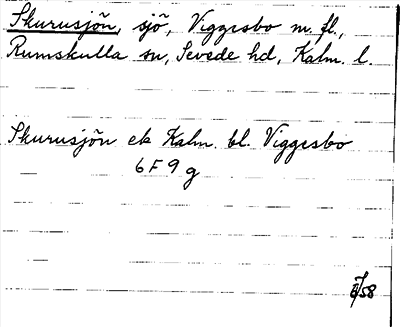 Skurusjön, sjö, Viggesbo m. fl.,
Rumskulla sn, Sevede hd, Kalm. l.
Skurusjön ek Kalm. bl. Viggesbo
6F9g